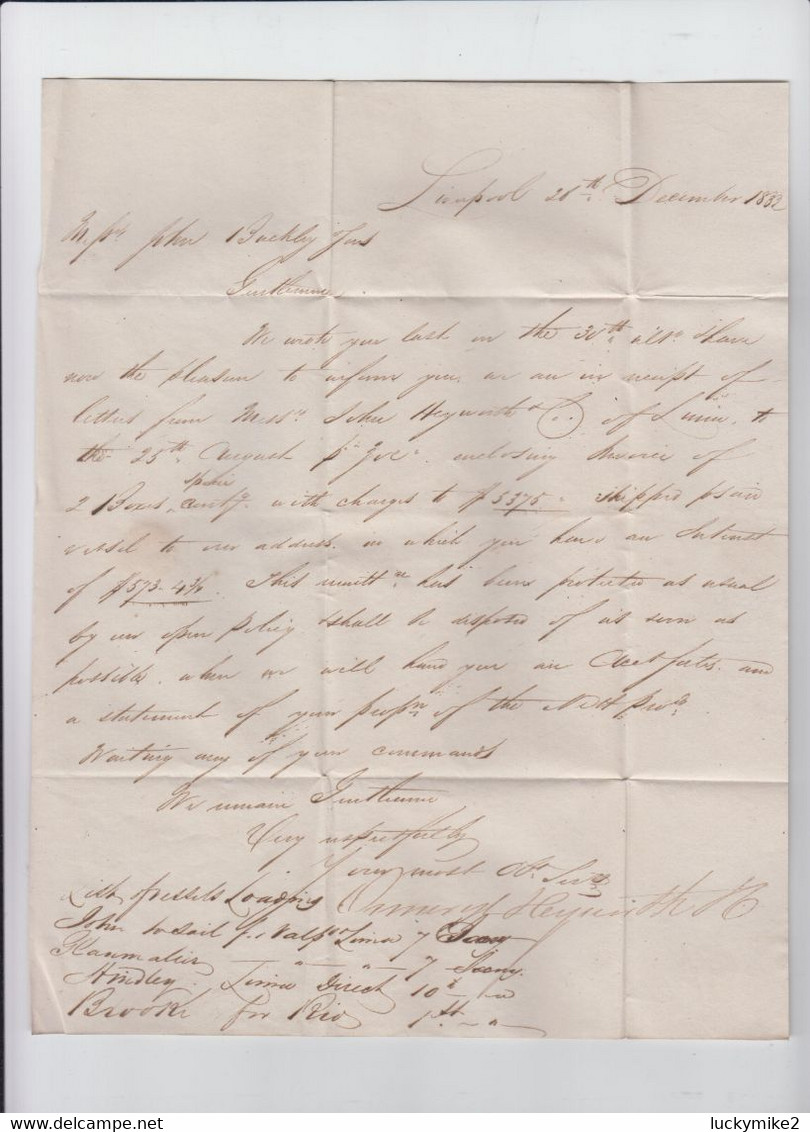 Liverpool 28th December 1832
Messrs John Buckley & Sons
Gentlemen
We wrote you last on the 30th ulto & have
now the pleasure to inform you, we are in receipt of
letters from Messrs John Heyworth & Co. of Lima, to
the 25th August enclosing Invoice of
2 Boxes specie with charges to $5375. shipped
vessel to our address. in which you have an Interest
of $573-4 This remittce has been protected as usual
by our open Policy & shall be disposed of as soon as
possible. when we will hand you an and
a statement of your propn of the Nett Procds
Waiting any of your commands
We remain Gentlemen
Very respectfully
Your most Obt Servts
Ormerod Heyworth & Co
List of vessels Loading
John to sail for Valpso & Lima 7
7 Jany.
Hindley. Lima Direct 10
Brooke for Rio 1st
luckymike2